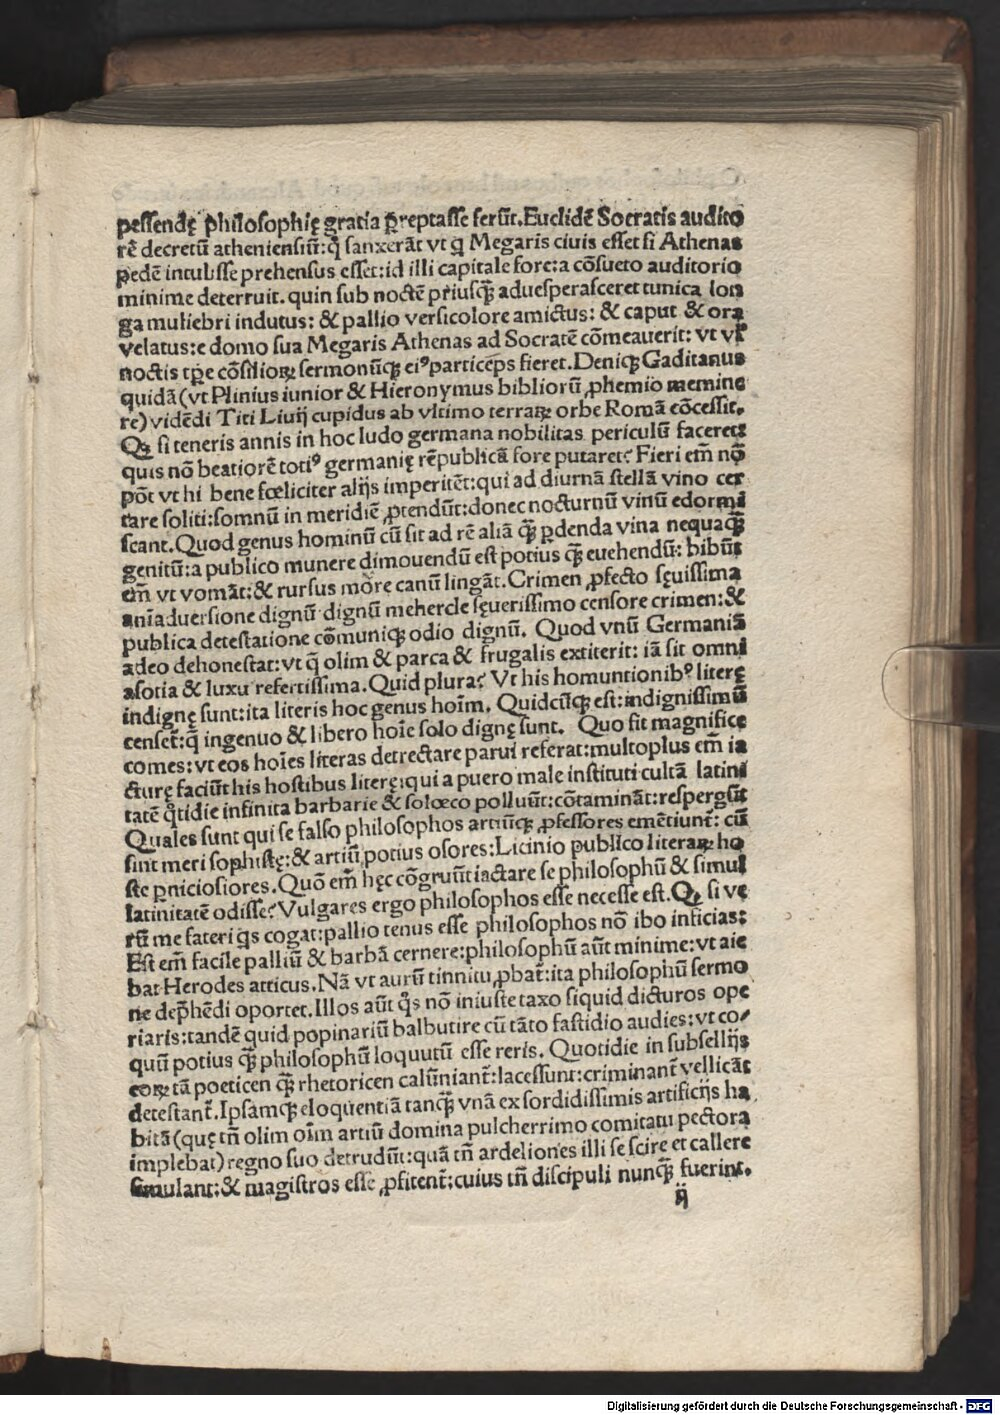 pessendę philosophię gratia ꝑreptasse ferūt. Euclidē Socratis audito
rē decretū atheniensiū: q̄ sanxerāt vt q Megaris ciuis esset si Athenas
pedē intulisse prehensus esset: id illi capitale fore: a cōsueto auditorio
minime deterruit. quin sub noctē priusq̄ aduesperasceret tunica lon
ga muliebri indutus: & pallio versicolore amictus: & caput & ora
velatus: e domo sua Megaris Athenas ad Socratē cōmeauerit: vt vl
noctis tꝑe cōsilioꝝ sermonūqꝫ eiꝰ particeps fieret. Deniqꝫ Gaditanus
quidā (vt Plinius iunior & Hieronymus bibliorū ꝓhemio memine
re) vidēdi Titi Liuij cupidus ab vltimo terraꝝ orbe Romā cōcessit.
Qꝫ si teneris annis in hoc ludo germana nobilitas periculū faceret:
quis nō beatiorē totiꝰ germanię rēpublicā fore putaret? Fieri em̄ nō
pōt vt hi bene fœliciter alijs imperitēt: qui ad diurnā stellā vino cer
tare soliti: somnū in meridiē ꝓtendūt: donec nocturnū vinū edormi
scant. Quod genus hominū cū sit ad rē aliā q̄ ꝑdenda vina nequaq̄
genitū: a publico munere dimouendū est potius q̄ euehendū: bibūt
em̄ vt vomāt: & rursus more canū lingāt. Crimen ꝓfecto sęuissima
aīaduersione dignū dignū mehercle sęuerissimo censore crimen: &
publica detestatione cōmuniqꝫ odio dignū. Quod vnū Germaniā
adeo dehonestat: vt q̄ olim & parca & frugalis extiterit: iā sit omni
asotia & luxu refertissima. Quid plura? Vt his homuntionibꝰ literę
indignę sunt: ita literis hoc genus hoīm. Quidcūqꝫ est: indignissimū
censet̄: q̄ ingenuo & libero hoīe solo dignę sunt. Quo fit magnifice
comes: vt eos hoīes literas detrectare parui referat: multoplus em̄ ia
cturę faciūt his hostibus literę: qui a puero male instituti cultā latini
tatē q̄tidie infinita barbarie & solœco polluūt: cōtamināt: respergūt
Quales sunt qui se falso philosophos artiūqꝫ ꝓfessores emētiunt̄: cū
sint meri sophistę: & artiū potius osores: Licinio publico literaꝝ ho
ste ꝑniciosiores. Quō em̄ hęc cōgruūt iactare se philosophū & simul
latinitatē odisse? Vulgares ergo philosophos esse necesse est. Qꝫ si ve
rū me fateri q̄s cogat: pallio tenus esse philosophos nō ibo inficias:
Est em̄ facile palliū & barbā cernere: philosophū aūt minime: vt aie
bat Herodes atticus. Nā vt aurū tinnitu ꝓbat̄: ita philosophū sermo
ne dep̄hēdi oportet. Illos aūt q̄s nō iniuste taxo siquid dicturos ope
riaris: tandē quid popinariū balbutire cū tāto fastidio audies: vt co
quū potius q̄ philosophū loquutū esse reris. Quotidie in subsellijs
eoꝝ tā poeticen q̄ rhetoricen calūniant̄: lacessunt: criminant̄ vellicāt
detestant̄. Ipsamqꝫ eloquentiā tanq̄ vnā ex sordidissimis artificijs ha
bitā (quę tn̄ olim oīm artiū domina pulcherrimo comitatu pectora
implebat) regno suo detrudūt: quā tn̄ ardeliones illi se scire et callere
simulant: & magistros esse ꝓfitent̄: cuius tn̄ discipuli nunq̄ fuerint.
ij
Digitalisierung gefördert durch die Deutsche Forschungsgemeinschaft - DFG